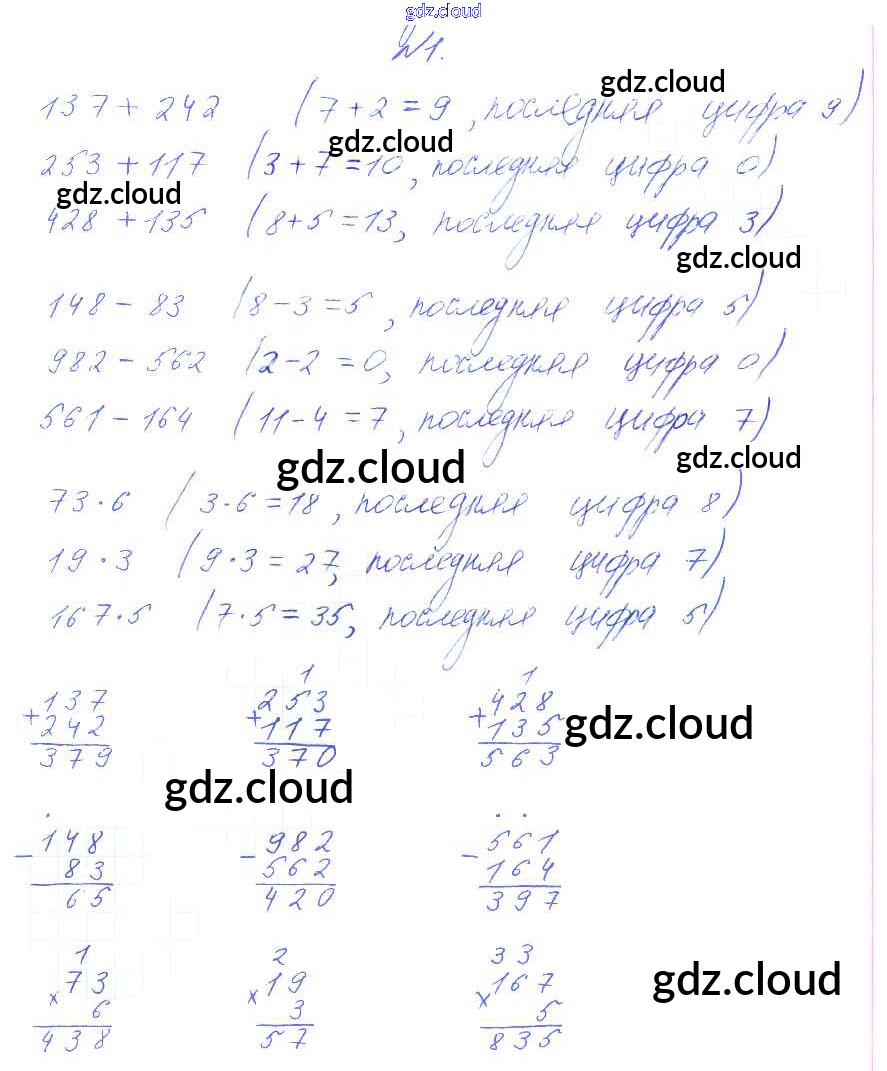 gdz.cloud
№1.
137 + 242 (7 + 2 = 9, последняя цифра 9)
gdz.cloud
gdz.cloud
253 + 117 (3 + 7 = 10, последняя цифра 0)
gdz.cloud
428 + 135 (8 + 5 = 13, последняя цифра 3)
gdz.cloud
148 - 83 (8 - 3 = 5, последняя цифра 5)
982 - 562 (2 - 2 = 0, последняя цифра 0)
561 - 164 (11 - 4 = 7, последняя цифра 7)
gdz.cloud gdz.cloud
73 · 6 (3 · 6 = 18, последняя цифра 8)
19 · 3 (9 · 3 = 27, последняя цифра 7)
167 · 5 (7 · 5 = 35, последняя цифра 5)
1 1
+ 137 + 253 + 428
242 117 135 gdz.cloud
379 370 563
gdz.cloud
. . .
- 148 - 982 - 561
83 562 164
65 420 397
1 2 33
× 73 × 19 × 167 gdz.cloud
6 3 5
438 57 835